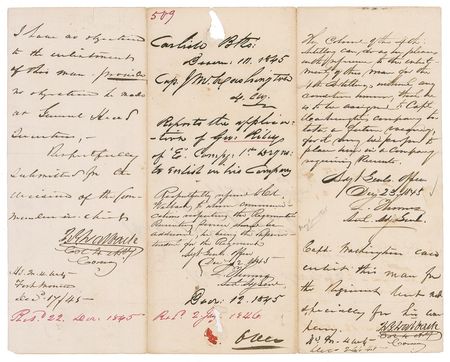 I have no objection
to the enlistment
of this man provided
no objection be made
at General Head
Quarters,-
Respectfully
Submitted for the
decision of the Com-
mander in chief
Col 4th Arty
Comdg
Hd. Qrs. 4 Arty
Fort Monroe
Dec 17/45
Recd. 22. Decr. 1845
509
Carlisle Bks:
Decem: 10. 1845
Capt J.M. Washington
4. Arty.
Reports the applica-
tion of Geo. Riley
of "E" Compy. 1st Drgns:
to enlist in his Company
Respectfully referred to Col.
Walbach, to whom communi-
cations respecting the Regimental
Recruiting Service should be
addressed, he being the superin-
tendent for the Regiment
Adjt Genls Office
Dec 12 1845
L. Thomas
Asst Adj Genl
Decr. 12. 1845
Recd 2 Jay 1846
The Colonel of the 4th
Artillery can, do as he pleases
with reference to the enlist-
ment of this man for the
4th Artillery, without any
condition that he
is to be assigned to Capt
Washington's company
to place him in a Company
requiring Recruits.
Adjt Genls Office
Dec 23 1845
L. Thomas
Asst Adj Genl.
Capt. Washington can
enlist this man for
the Regiment but not
specially for his com-
pany.
Hd. Qr. 4 Arty